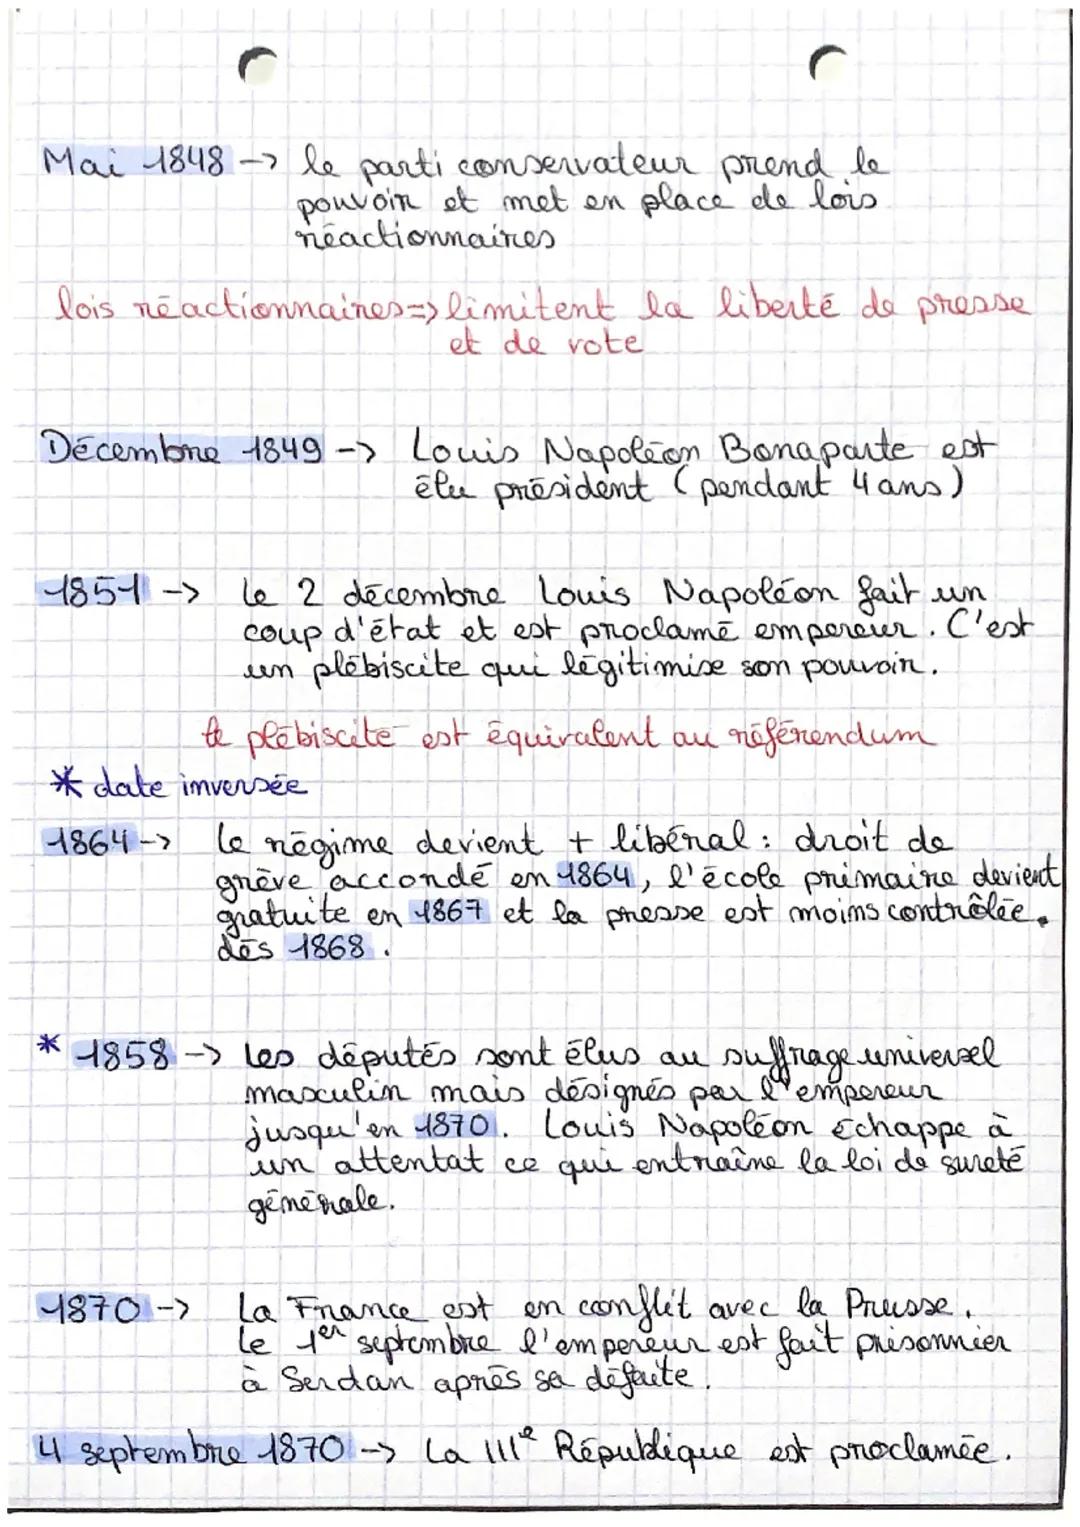 Mai 1848 -> le parti conservateur prend le
pouvoir et met en place de lois
réactionnaires
lois réactionnaires => limitent la liberté de presse
et de vote
Décembre 1849 -> Louis Napoléon Bonaparte est
élu président (pendant 4 ans)
1851 -> Le 2 décembre Louis Napoléon fait un
coup d'état et est proclamé empereur. C'est
un plébiscite qui légitimise son pouvoir.
le plébiscite est équivalent au référendum
* date inversée
1864 -> Le régime devient + libéral : droit de
grève accordé en 1864, l'école primaire devient
gratuite en 1867 et la presse est moins contrôlée.
dès 1868.
* 1858 -> Les députés sont élus au suffrage universel
masculin mais désignés par l'empereur
jusqu'en 1870. Louis Napoléon échappe à
un attentat ce qui entraîne la loi de sureté
générale.
1870 -> La France est en conflit avec la Prusse.
Le 1er septembre l'empereur est fait prisonnier
à Serdan après sa défaite.
4 septembre 1870 -> La IIIe République est proclamée.